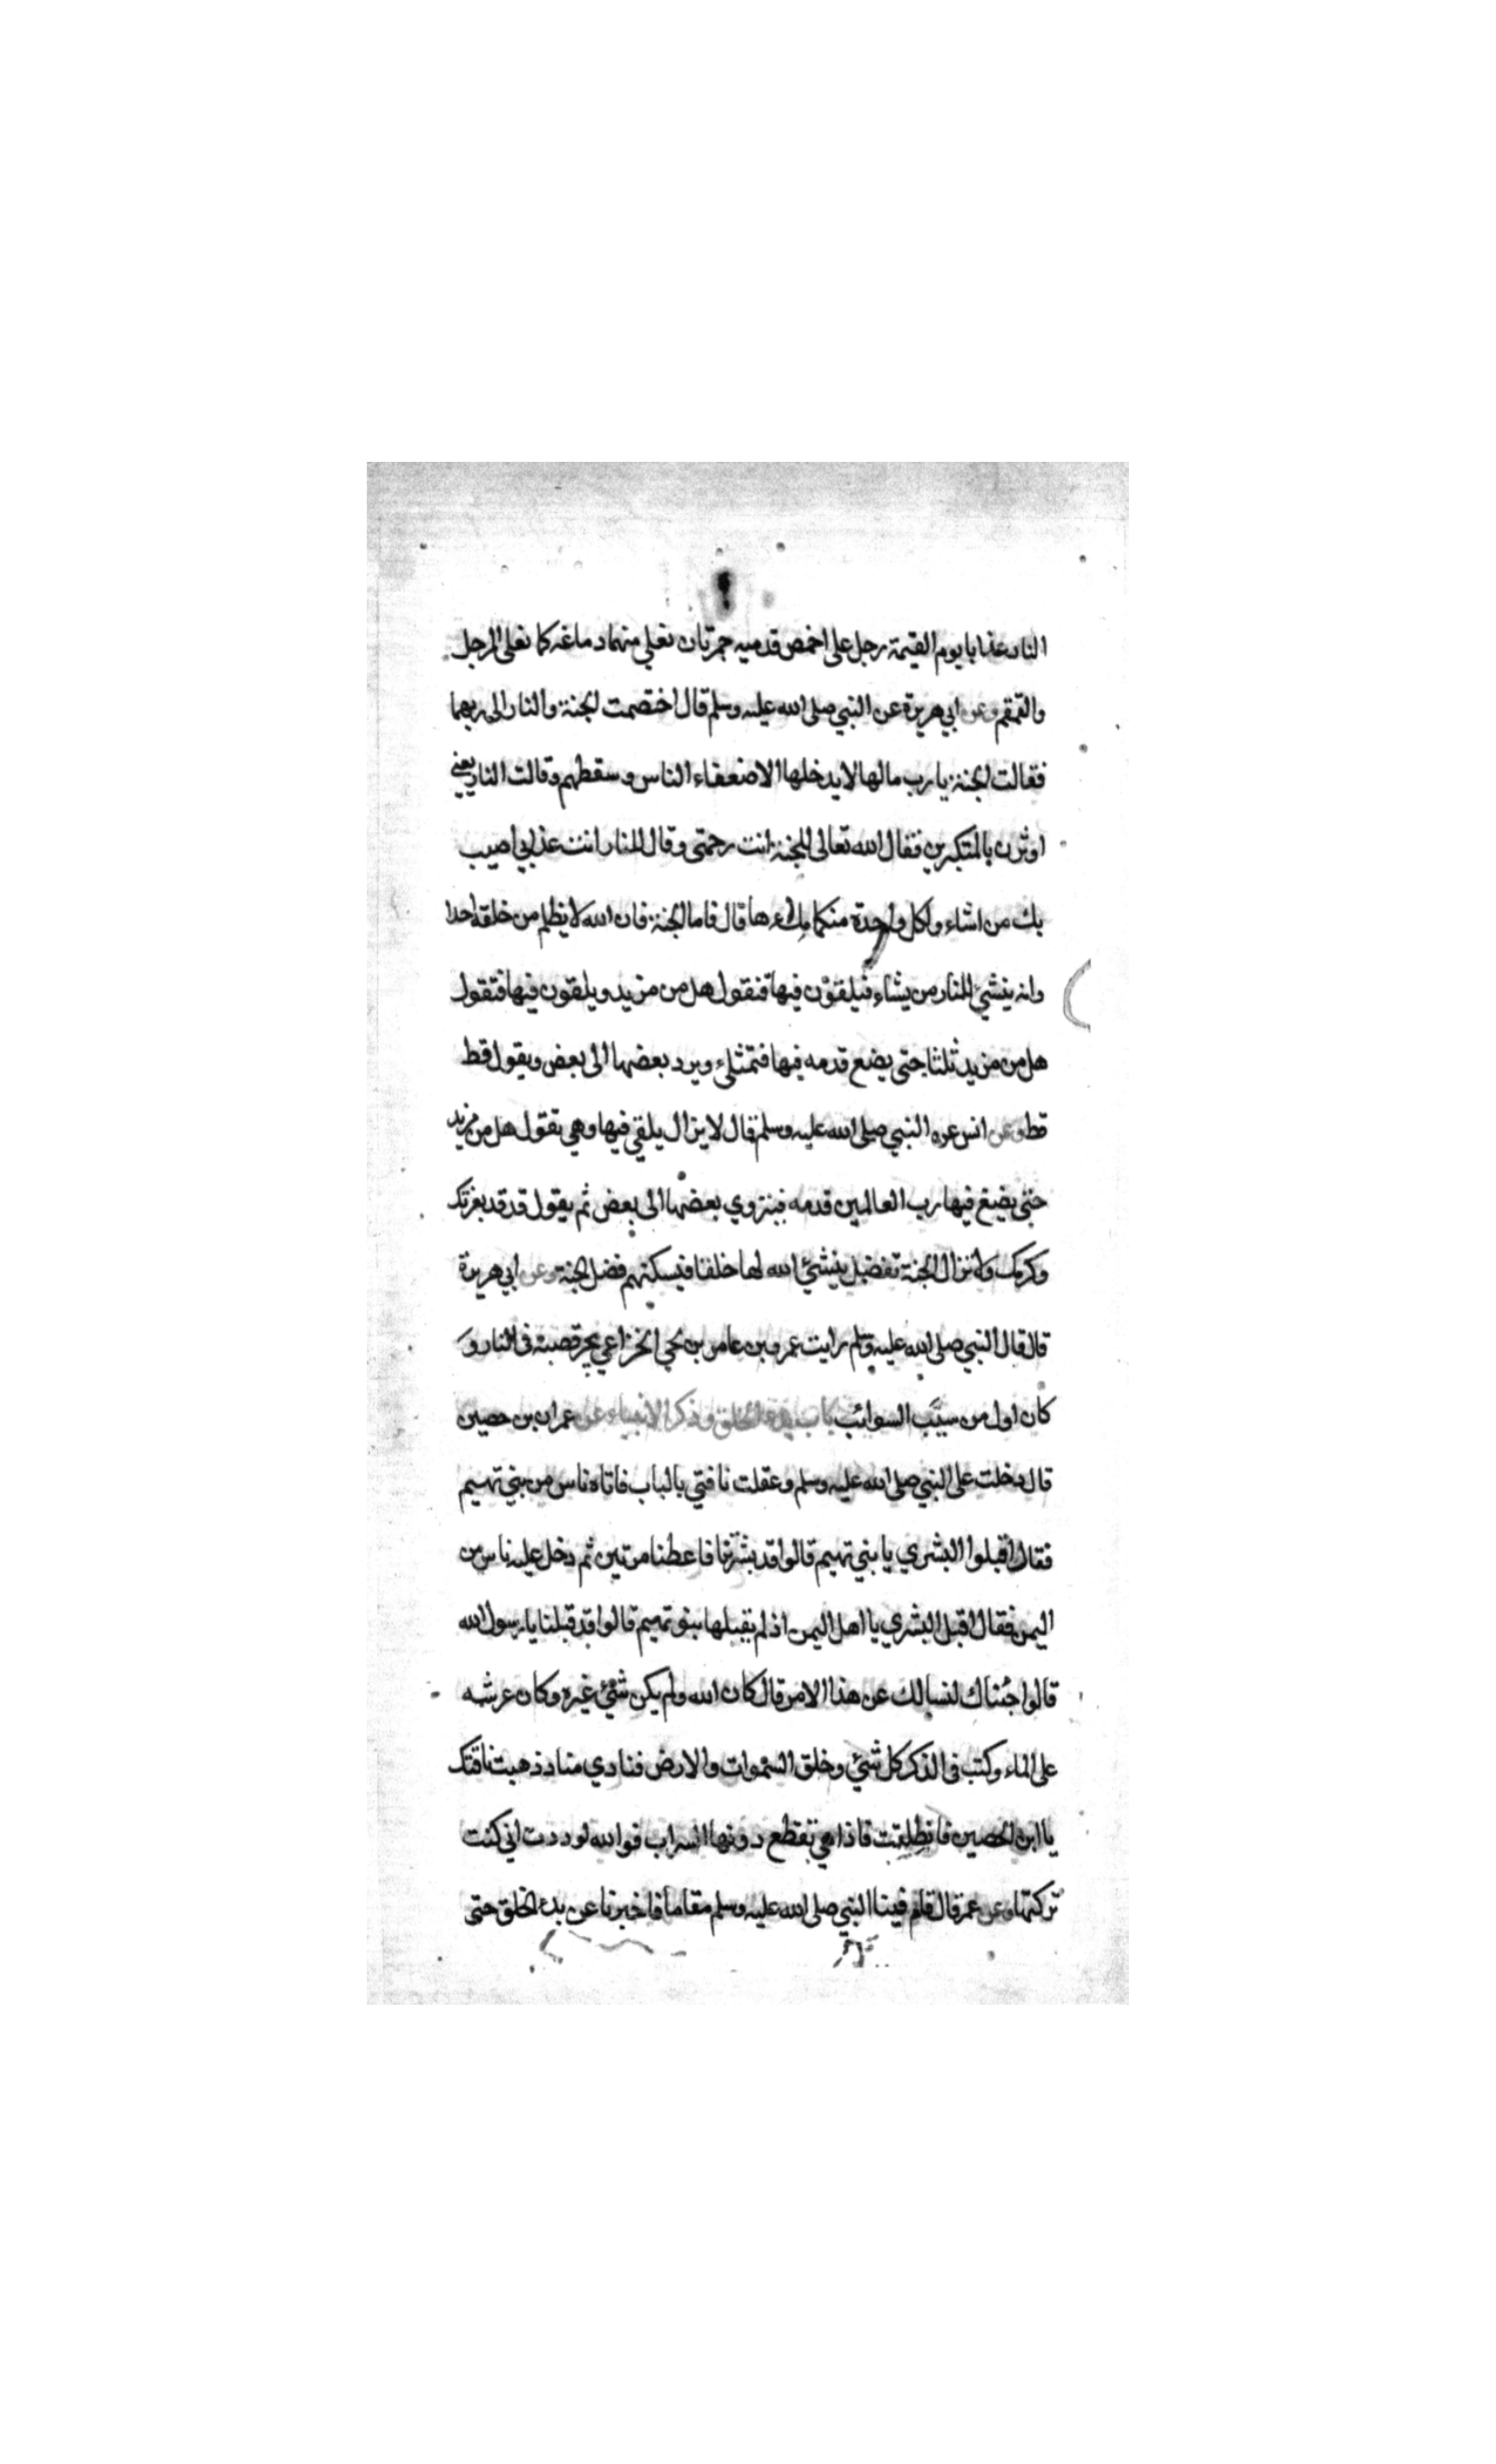 النار عذابا يوم القيمة رجل على اخمص قدميه جمرتان تغلي منهما دماغه كما تغلى المرجل
والقمقم وعن ابي هريرة عن النبي صلى الله عليه وسلم قال اختصمت الجنة والنار الى ربهما
فقالت الجنة يا رب مالها لا يدخلها الا ضعفاء الناس وسقطهم وقالت النار يعني
اوثرت بالمتكبرين فقال الله تعالى للجنة انت رحمتي وقال للنار انت عذابي اصيب
بك من اشاء ولكل واحدة منكما ملؤها قال فاما الجنة فان الله لا يظلم من خلقه احدا
وانه ينشئ للنار من يشاء فيلقون فيها فتقول هل من مزيد ويلقون فيها فتقول
هل من مزيد ثلثا حتى يضع قدمه فيها فتمتلئ ويرد بعضها الى بعض ويقول قط
قط وعن انس عن النبي صلى الله عليه وسلم قال لا يزال يلقى فيها وهي تقول هل من مزيد
حتى يضع فيها رب العالمين قدمه فينزوي بعضها الى بعض ثم يقول قد قد بعزتك
وكرمك ولا تزال الجنة تفضل ينشئ الله لها خلقا فيسكنهم فضل الجنة وعن ابي هريرة
قال قال النبي صلى الله عليه وسلم رايت عمرو بن عامر بن لحي الخزاعي يجر قصبه في النار و
كان اول من سيّب السوائب كتاب بدء الخلق وذكر الانبياء عن عمران بن حصين
قال دخلت على النبي صلى الله عليه وسلم وعقلت ناقتي بالباب فاتاه ناس من بني تميم
فقال اقبلوا البشري يا بني تميم قالوا قد بشرتنا فاعطنا مرتين ثم دخل عليه ناس من
اليمن فقال اقبل البشري يا اهل اليمن اذ لم يقبلها بنو تميم قالوا قد قبلنا يا رسول الله
قالوا جئناك لنسالك عن هذا الامر قال كان الله ولم يكن شئ غيره وكان عرشه
على الماء وكتب في الذكر كل شئ وخلق السموات والارض فنادي مناد ذهبت ناقتك
يا ابن الحصين فانطلقت فاذا هي تقطع دونها السراب فوالله لوددت اني كنت
تركتها وعن عمر قال قام فينا النبي صلى الله عليه وسلم مقاما فاخبرنا عن بدء الخلق حتى